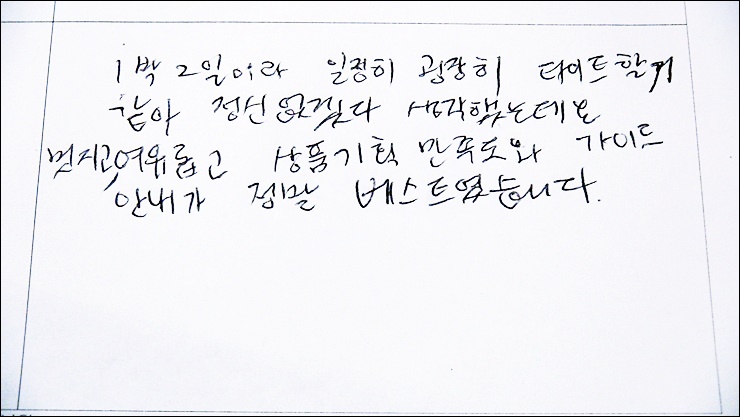 1박 2일이라 일정히 굉장히 타이트할거
같아 정신없겠다 생각했는데도
멋지고, 여유롭고 상품기획 만족도와 가이드
안내가 정말 베스트였습니다.